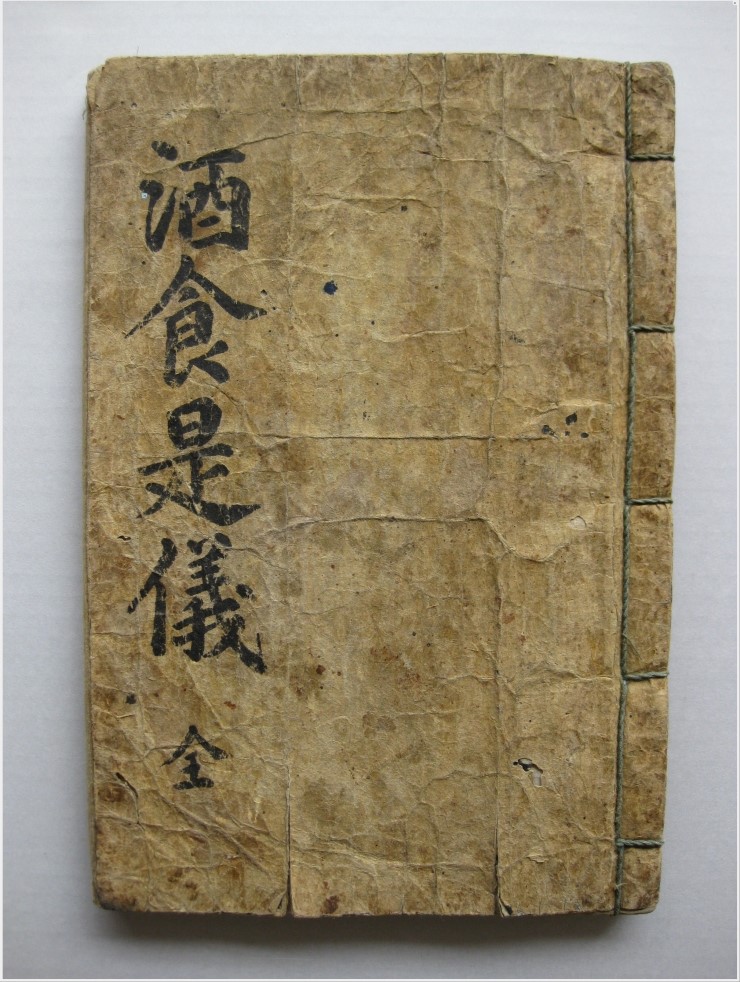 酒食是儀
全